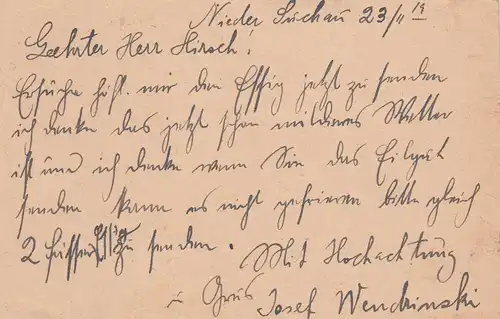 Nieder Suchau 23/II 19
Geehrter Herr Hirsch!
Ersuche höfl. mir den Essig jetzt zu senden
ich denke das jetzt schon milderes Wetter
ist und ich denke wenn Sie das Eilgut
senden kann es nicht gefrieren bitte gleich
2 Fässer Essig zu senden.
Mit Hochachtung
u Grus
Josef Wendrinski